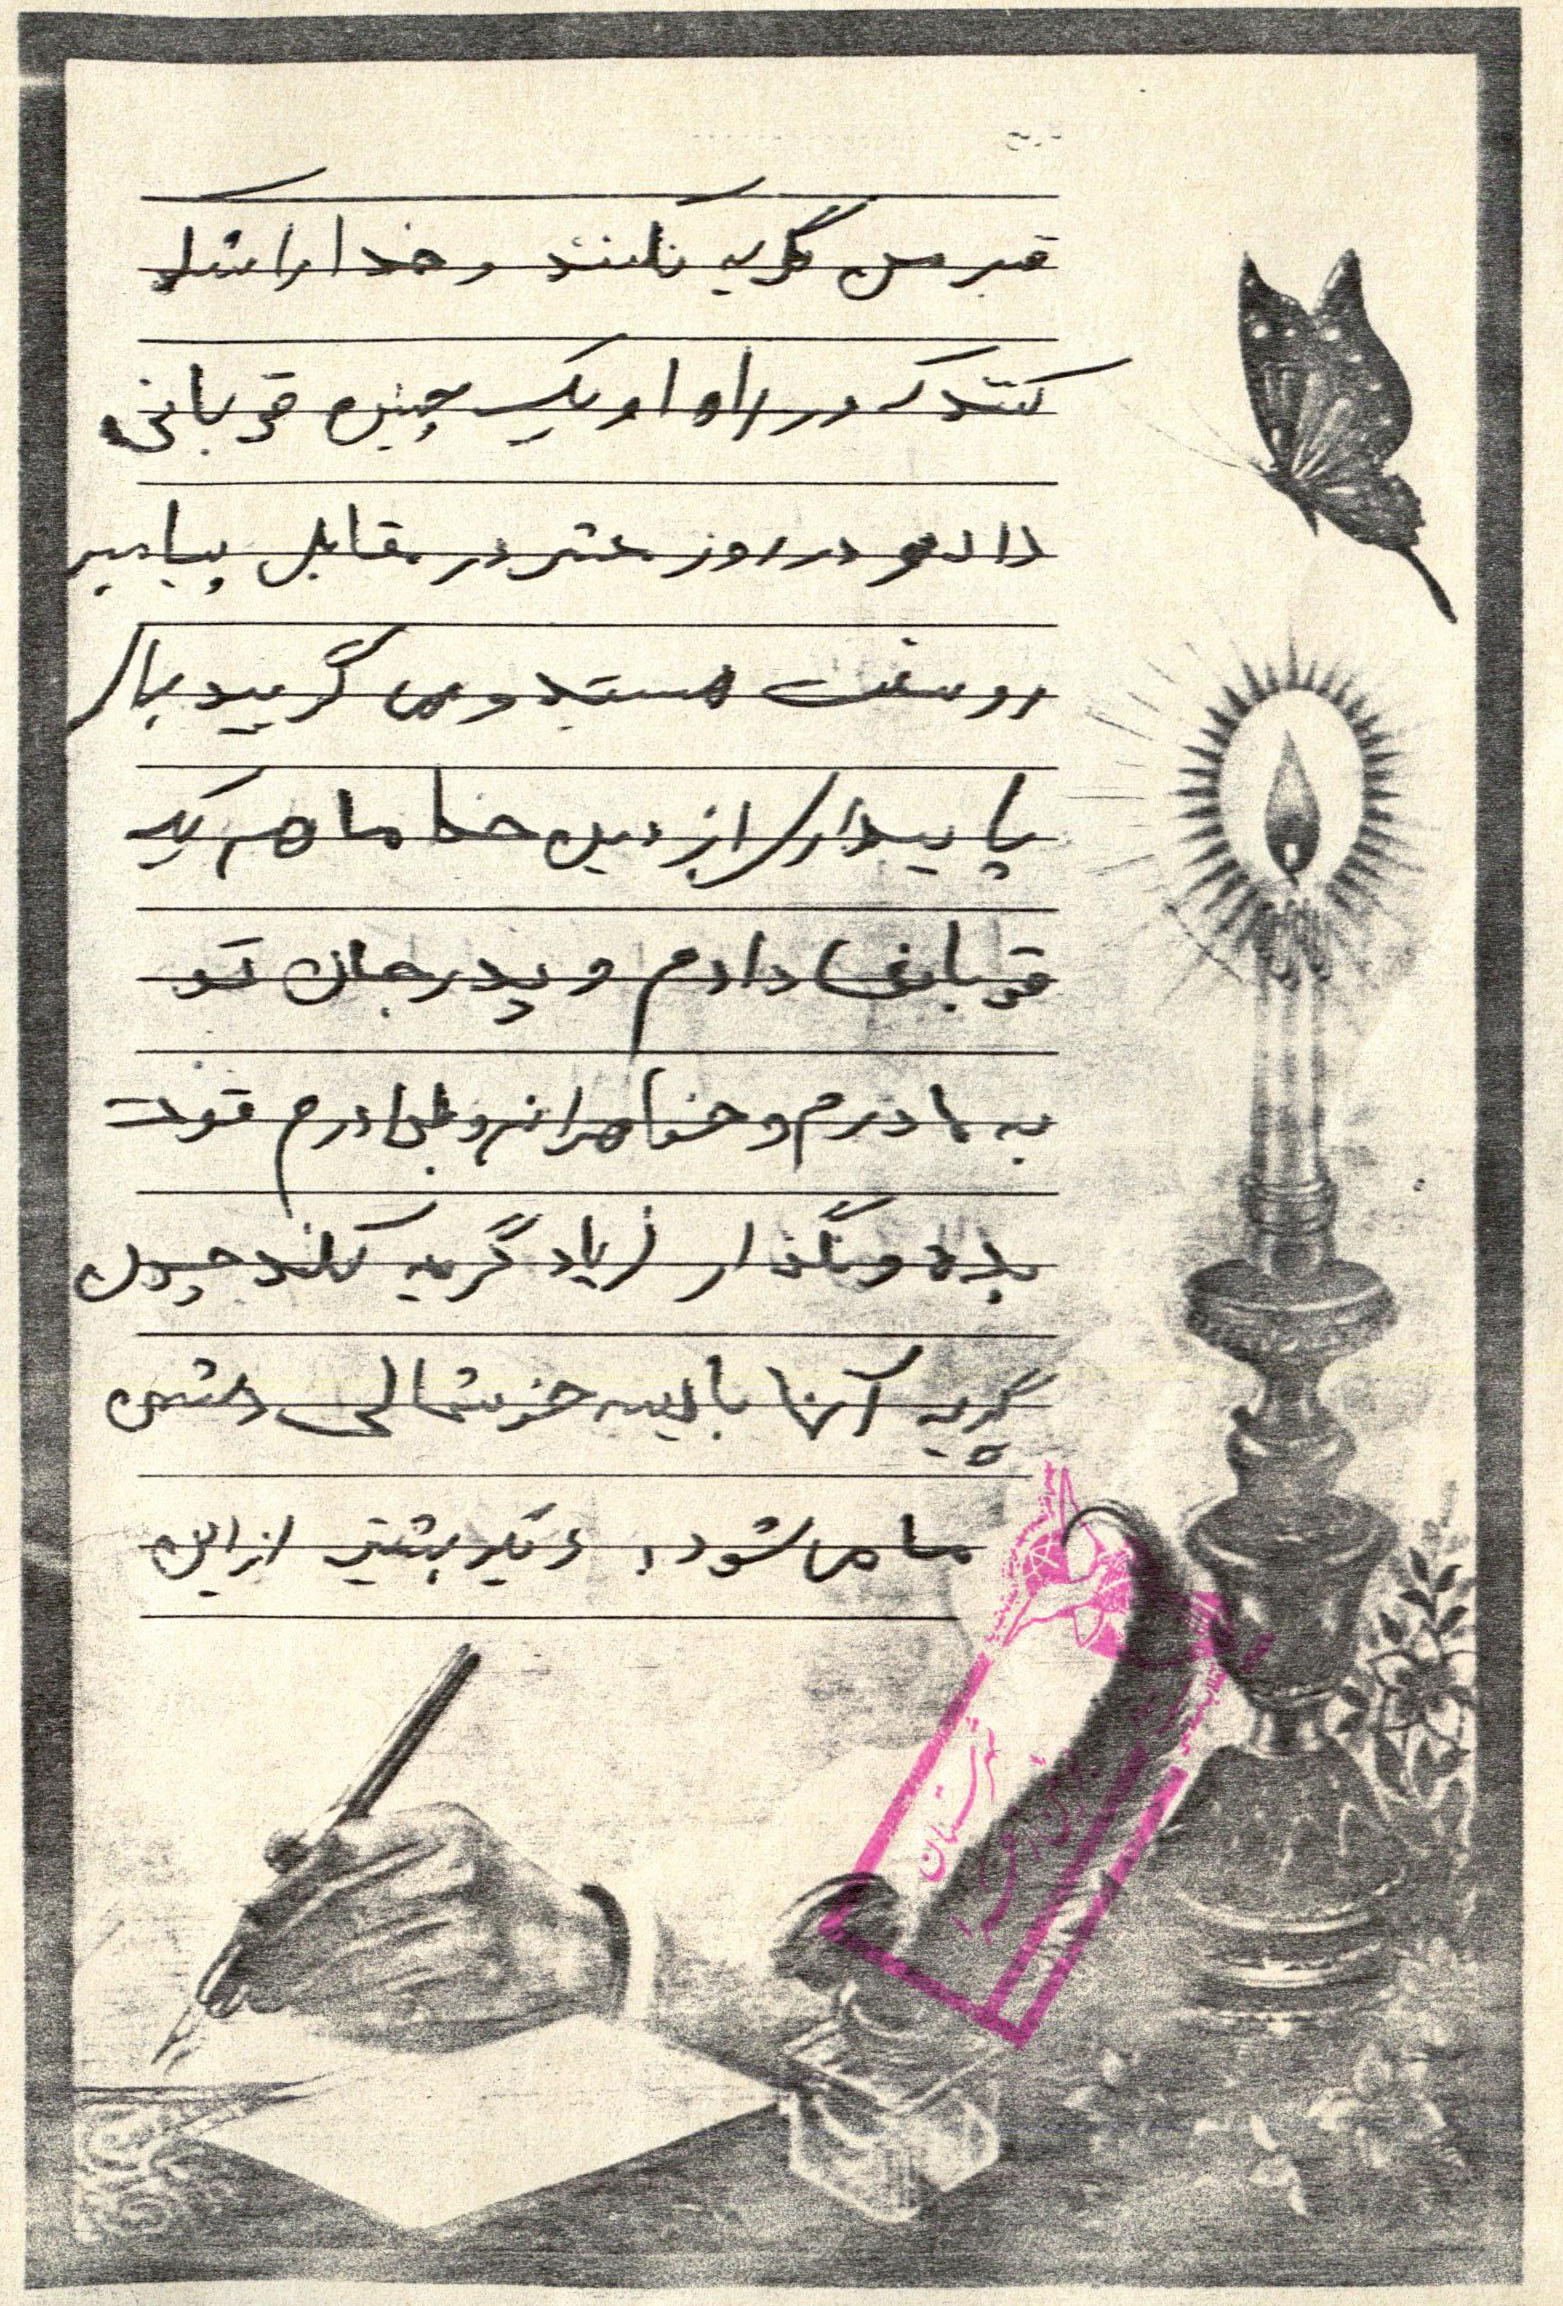 قبر من گریه نکنند و خدا را شکر
کنند که در راه او یک چنین قربانی
دادم و در روز حشر در مقابل پیامبر
رو سفید هستید و می گویید برای
پایداری از دین خدا ما هم یک
قربانی دادم و پدر جان تو
به مادرم و خواهرانم و برادرم قوت
بده و نگذار زیاد گریه کنند چون
گریه آنها باعث خوشحالی دشمن
ما می شود. دیگر بیشتر از این